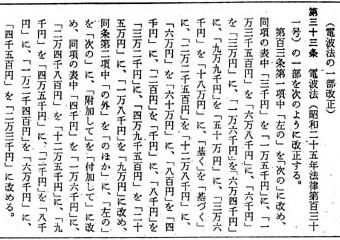 (電波法の一部改正)
第三十三条 電波法(昭和二十五年法律第百三十
一号)の一部を次のように改正する。
第百三条第一項中「左の」を「次の」に改め、
同項の表中「三千円」を「一万五千円」に、「一
万三千五百円」を「六万八千円」に、「六千円」
を「三万円」に、「一万六千円」を「六万四千円」
に、「九万九千円」を「五十万円」に、「三万六
千円」を「十八万円」に、「基く」を「基づく」
に、「二万二千五百円」を「十二万八千円」に、
「六万円」を「六十万円」に、「八百円」を「四
千円」に、「二百円」を「千円」に、「八千円」
を「五万円」に、「四万九千五百円」を「二十
五万円」に、「一万八千円」を「九万円」に改め、
同条第二項中「の外」を「のほか」に、「左の」
を「次の」に、「附加して」を「付加して」に改
め、同項の表中「四千円」を「二万六千円」に、
「二万四千八百円」を「十二万五千円」に、「九
千円」を「四万五千円」に、「三千円」を「八千
円」に、「一万二千四百円」を「六万二千円」に、
「四千五百円」を「二万三千円」に改める。